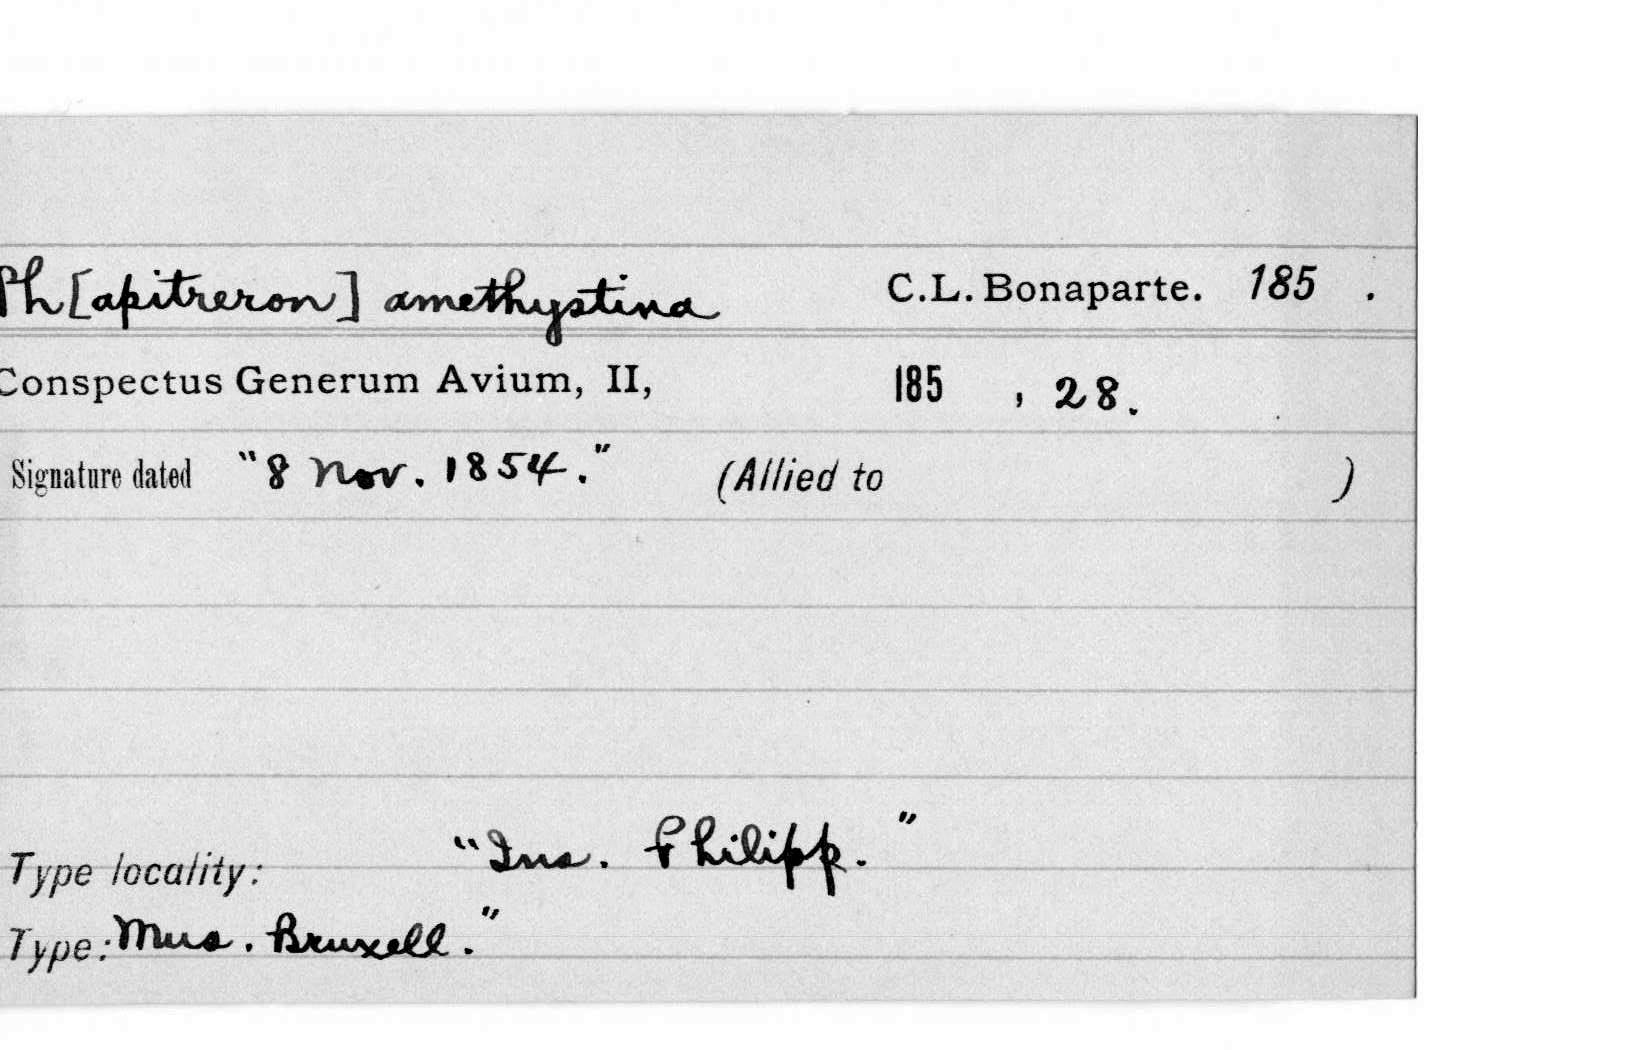 Ph[apitreron] amethystina C.L. Bonaparte. 185 .
Conspectus Generum Avium, II, 185 , 28.
Signature dated "8 Nov. 1854." (Allied to )
Type locality: "Ins. Philipp."
Type: Mus. Bruxell."